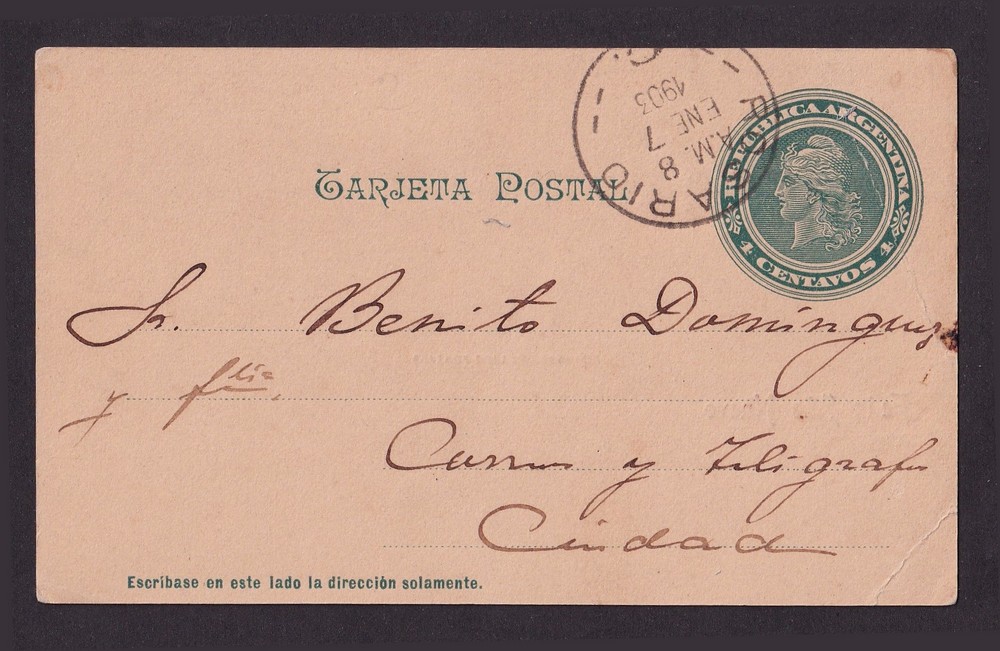 TARJETA POSTAL
ROSARIO
A.M. 8
ENE 7
1903
REPÚBLICA ARGENTINA
4 CENTAVOS 4
Sr. Benito Domínguez
y flia.
Correos y Telégrafos
Ciudad
Escríbase en este lado la dirección solamente.